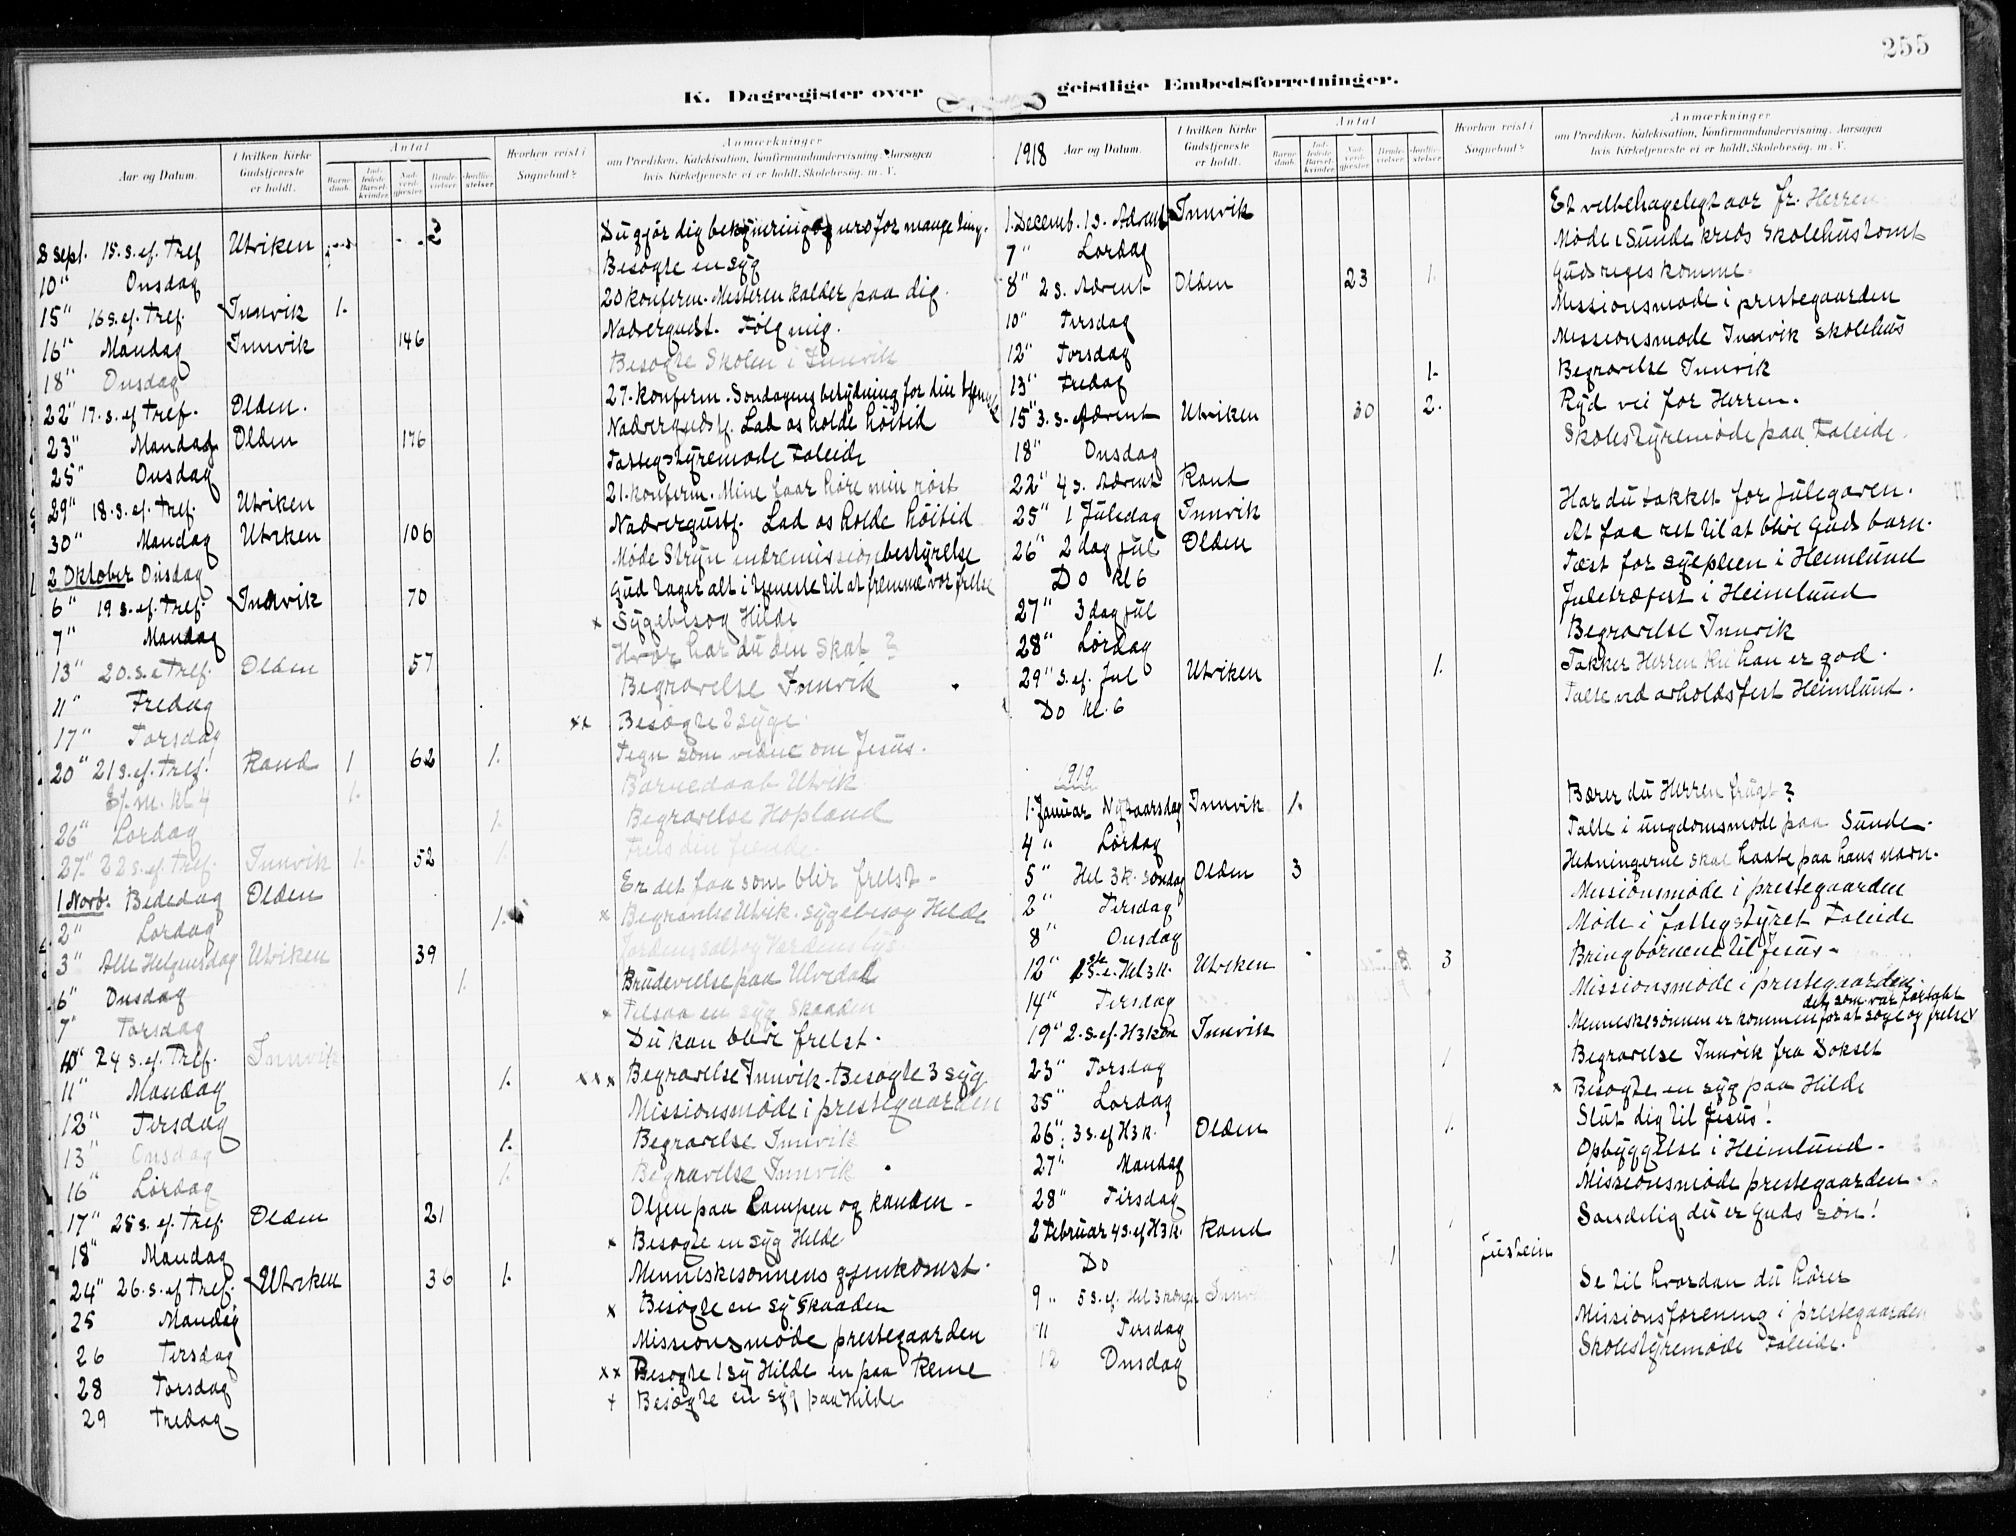 255
K. Dagregister over geistlige Embedsforretninger.
Aar og Datum.
I hvilken Kirke Gudstjeneste er holdt.
Antal
Barnedaab.
Indledede Barselkvinder
Nadverdgjester
Brudevielser
Jordfæstelser
Hvorhen reist i Sognebud?
Anmærkninger
om Prædiken, Katekisation, Konfirmandundervisning, Aarsagen
hvis Kirketjeneste ei er holdt, Skolebesøg. m. V.
8 Sept. 15.s.ef. Tref Utviken 2 Du gjør dig bekymring og uro for mange ting.
10" Onsdag Besøgte en syg
15" 16 s.ef. Tref. Innvik 1. 20 konferm. Mesteren kalder paa dig.
16" Mandag Innvik 146 Nadvergudst. Følg mig.
18" Onsdag Besøgte Skolen i Innvik
22" 17.s.ef Tref. Olden. 27. konferm. Søndagens betydning for din
23" Mandag Olden 176 Nadvergudstj. Lad os holde høitid
25" Onsdag Fattigstyremøde Faleide
29" 18.s.ef. Tref. Utviken 21. konferm. Mine faar høre min røst
30" Mandag Utviken 106 Nadvergustj. Lad os holde høitid
2 Oktober Onsdag Møde Stryn indremissionsbestyrelse
6" 19 s.ef. Tref. Innvik 70 Gud tager alt i tjeneste til at fremme vor frelse
7" Mandag x Sygebesøg Hilde
13" 20.s.e Tref. Olden 57 Hvor har du den skat?
11" Fredag Begravelse Innvik
17" Torsdag xx Besøgte 2 syge.
20" 21 s.ef. Tref. Rand 1 62 1. Tegn som vidne om Jesus.
Ef.m. kl 4 1. Barnedaab Utvik
26" Lørdag 1. Begravelse Hopland
27" 22 s.ef. Tref. Innvik 1. 52 1. Frels din fiende.
1 Novb. Bededag Olden Er det faa som blir frelst -
2" Lørdag 1. x Begravelse Utvik. Sygebesøg Hilde
3" Alle Helgensdag Utviken 39 Jordens salt og Verdens lys
6" Onsdag 1. Brudevielse paa Ulvedal
7" Torsdag x Tilsaa en syg Skaaden
10" 24 s.ef. Tref. Innvik Du kan blive frelst.
11" Mandag 1. xxx Begravelse Innvik. Besøgte 3 syg
12" Tirsdag Missionsmøde i prestegaarden
13" Onsdag 1. Begravelse Innvik
16" Lørdag 1. Begravelse Innvik
17" 25 s.ef. Tref. Olden 21 Oljen paa Lampen og kanden -
18" Mandag x Besøgte en syg Hilde
24" 26.s.ef Tref. Utviken 36 1. Menneskesønnens gjenkomst.
25 Mandag x Besøgte en sy Skaaden
26 Tirsdag Missionsmøde prestegaarden
28 Torsdag xx Besøgte 1 sy Hilde en paa Reme
29 Fredag + Besøgte en syg paa Hilde
1918
Aar og Datum.
I hvilken Kirke Gudstjeneste er holdt.
Antal
Barnedaab.
Indledede Barselkvinder
Nadverdgjester
Brudevielser
Jordfæstelser
Hvorhen reist i Sognebud?
Anmærkninger
om Prædiken, Katekisation, Konfirmandundervisning, Aarsagen
hvis Kirketjeneste ei er holdt, Skolebesøg. m. V.
1. Decemb. 1 s. Advent Innvik Et velbehageligt aar fr. Herren
7" Lørdag Møde i Sunde kreds Skolehustomt
8" 2 s. Advent Olden 23 1. Guds riges komme.
10" Tirsdag Missionsmøde i prestegaarden
12" Torsdag Missionsmøde Innvik Skolehus
13" Fredag 1. Begravelse Innvik
15" 3.s. Advent Utviken 30 2. Ryd vei for Herren.
18" Onsdag Skolestyremøde paa Faleide.
22" 4 s. Advent Rand
25" 1 Juledag Innvik Har du takket for julegaven.
26" 2 dag jul Olden At faa ret til at blive Guds barn.
Do kl 6 Fest for sygepleien i Heimlund
27" 3 dag jul Juletræfest i Heimlund
28" Lørdag Begravelse Innvik
29" S.ef. Jul Utviken 1. Takker Herren thi han er god.
Do kl. 6 Talte ved avholdsfest Heimlund.
1919
1. Januar Nytaarsdag Innvik 1. Bærer du Herren frugt?
4" Lørdag Talte i ungdomsmøde paa Sunde.
5" Hel 3 K. søndag Olden 3 Hedningerne skal haabe paa hans navn.
2" Tirsdag Missionsmøde i prestegaarden
8" Onsdag Møde i fattigstyret Faleide
12" 1ste s.e. Hel 3 K. Utviken 3 Bring børnene til Jesus -
14" Tirsdag Missionsmøde i prestegaarden
19" 2.s.ef. H3kon Innvik Menneskesønnen er kommen for at søge og frelse det som var fortabt
23" Torsdag 1 Begravelse Innvik fra Dokset
25" Lørdag x Besøgte en syg paa Hilde
26" 3 s.ef H3K. Olden 1. Slut dig til Jesus!
27" Mandag Opbyggelse i Heimlund.
28" Tirsdag Missionsmøde prestegaarden.
2 Februar 4 s.ef H3K. Rand Sandelig du er Guds søn!
Do 1
9" 5 s.ef. Hel 3 konger Innvik Se til hvordan du hører
11 Tirsdag Missionsforening i prestegaarden
12 Onsdag Skolestyremøde Faleide.